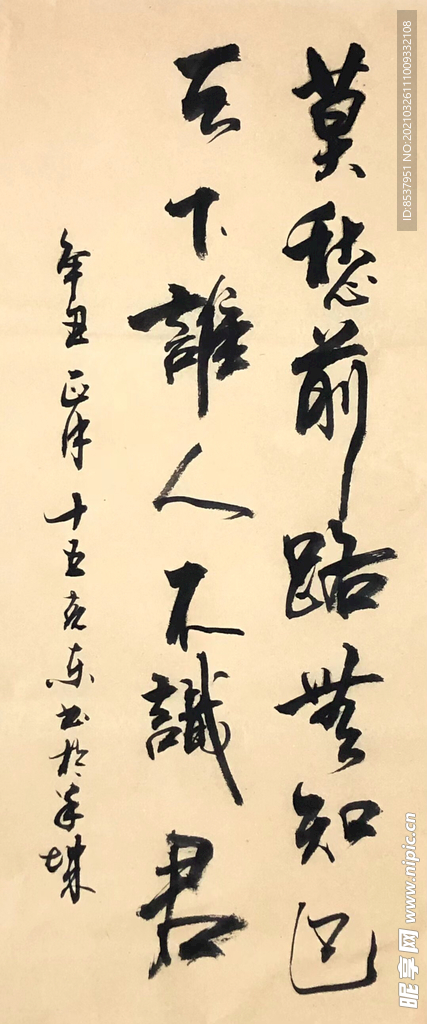 莫愁前路無知己
天下誰人不識君
辛丑正月十五克东书於羊城
ID:8537951 NO:20210326111009332108
昵享网 www.nipic.cn